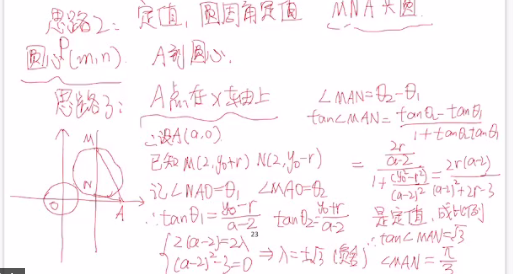 思路2: 定值, 圆周角定值 MNA 共圆
圆心P(m,n) A到圆心.
思路3: A点在x轴上
∴设A(a,0)
已知M(2,y₀+r) N(2,y₀-r)
记∠NAO=θ₁ ∠MAO=θ₂
∴tanθ₁=\frac{y₀-r}{a-2} tanθ₂=\frac{y₀+r}{a-2}
{2(a-2)=2λ
(a-2)²-3=0 ⇒λ=±√3(负舍)
∠MAN=θ₂-θ₁
tan∠MAN=\frac{tanθ₂-tanθ₁}{1+tanθ₂tanθ₁}
=\frac{\frac{2r}{a-2}}{1+\frac{(y₀²-r²)}{(a-2)²}}=\frac{2r(a-2)}{(a-2)²+2r-3}
是定值, 成比例
∴tan∠MAN=√3
∠MAN=\frac{π}{3}
M
N
O
A
23